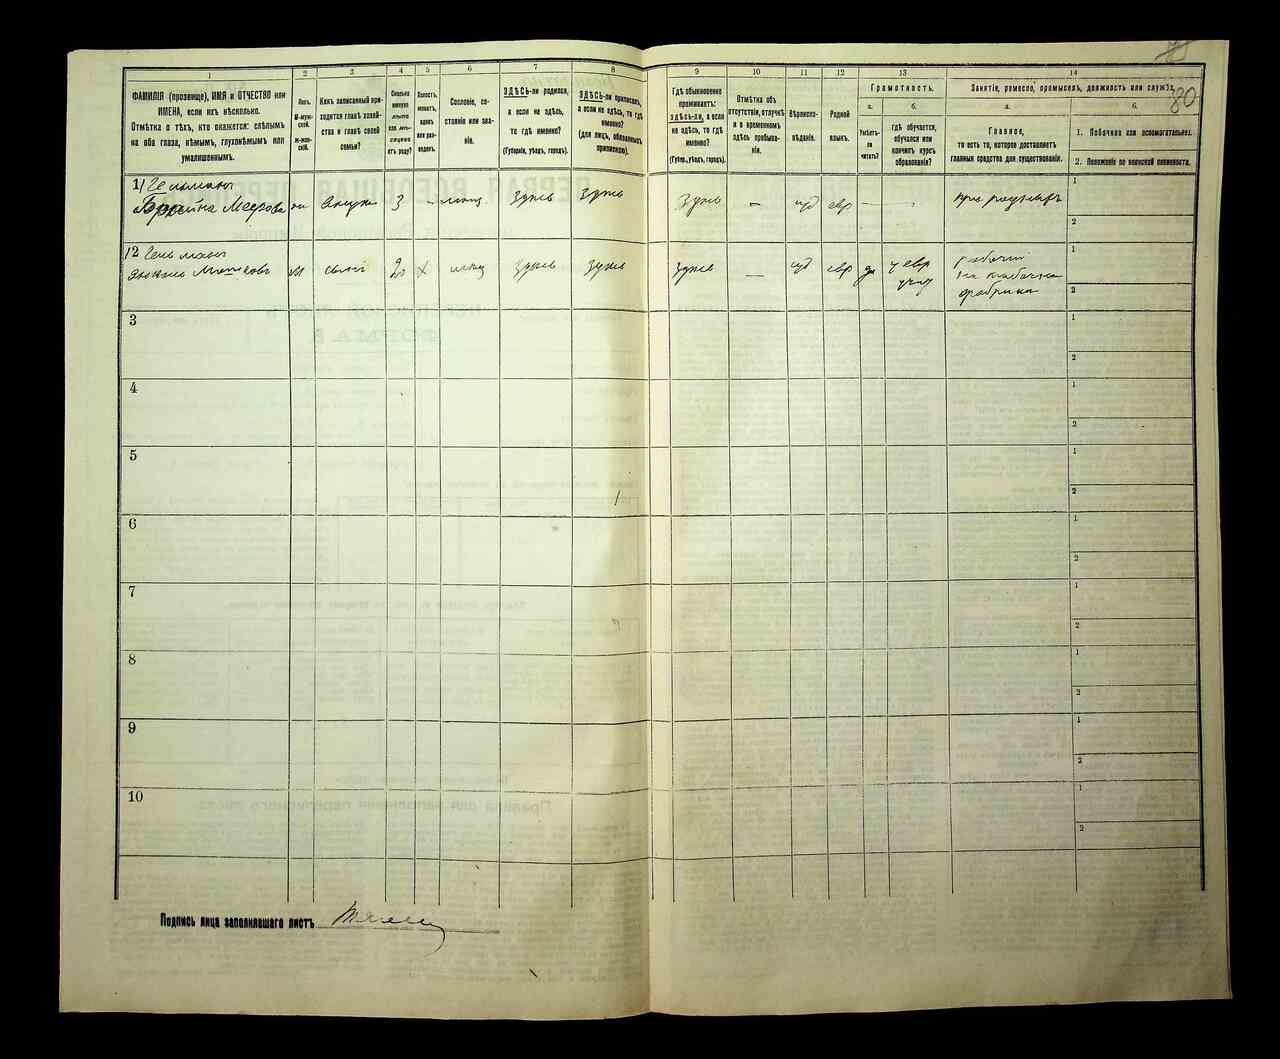 80
1
2
3
4
5
6
7
8
9
10
11
12
13
14
ФАМИЛІЯ (прозвище), ИМЯ и ОТЧЕСТВО или
ИМЕНА, если ихъ нѣсколько.
Отмѣтка о тѣхъ, кто окажется: слѣпымъ
на оба глаза, нѣмымъ, глухонѣмымъ или
умалишеннымъ.
Полъ.
М-муж-
ской.
Ж-жен-
скій.
Какъ записанный при-
ходится главѣ хозяй-
ства и главѣ своей
семьи?
Сколько
минуло
лѣтъ
или мѣ-
сяцевъ
отъ роду?
Холостъ,
женатъ,
вдовъ
или раз-
веденъ.
Сословіе, со-
стояніе или зва-
ніе.
ЗДѢСЬ-ли родился,
а если не здѣсь,
то гдѣ именно?
(Губернія, уѣздъ, городъ).
ЗДѢСЬ-ли приписанъ,
а если не здѣсь, то гдѣ
именно?
(для лицъ, обязанныхъ
припискою).
Гдѣ обыкновенно
проживаетъ:
ЗДѢСЬ-ли, а если
не здѣсь, то гдѣ
именно?
(Губер., уѣздъ, городъ).
Отмѣтка объ
отсутствіи, отлучкѣ
и о временномъ
здѣсь пребыва-
ніи.
Вѣроиспо-
вѣданіе.
Родной
языкъ.
Грамотность.
а.
б.
Умѣетъ-
ли
читать?
гдѣ обучается,
обучался или
кончилъ курсъ
образованія?
Занятіе, ремесло, промыселъ, должность или служба.
а.
б.
Главное,
то есть то, которое доставляетъ
главныя средства для существованія.
1. Побочное или вспомогательное.
2. Положеніе по воинской повинности.
1
Мееровна
3
здѣсь
здѣсь
здѣсь
—
іуд
евр
—
—
1
2
2
М
20
х
здѣсь
здѣсь
здѣсь
—
іуд
евр
да
рабочій
на табачн
фабрики
1
2
3
1
2
4
1
2
5
1
2
6
1
2
7
1
2
8
1
2
9
1
2
10
1
2
Подпись лица заполнявшаго листъ